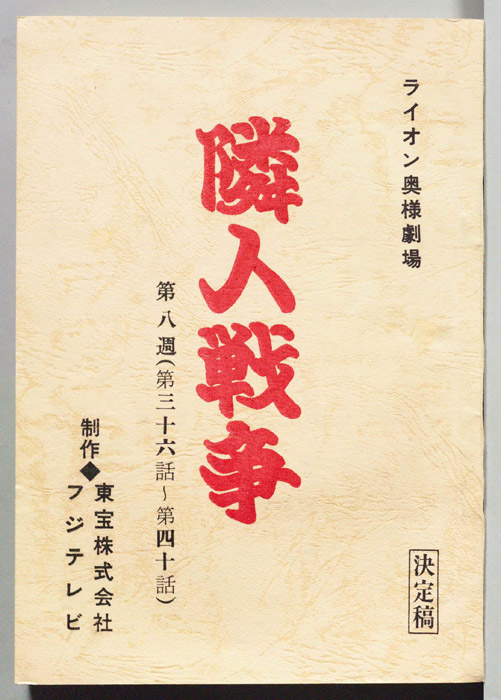 ライオン奥様劇場
隣人戦争
第八週(第三十六話～第四十話)
制作◆東宝株式会社
フジテレビ
決定稿